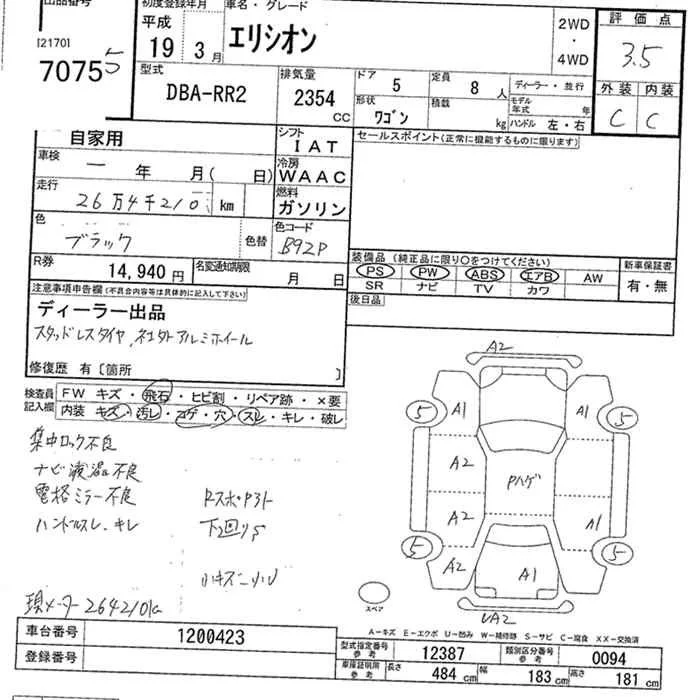 出品番号
[2170]
7075 5
初度登録年月
平成
19 3月
車名・グレード
エリシオン
2WD
・
4WD
評価点
3.5
外装 内装
C C
型式
DBA-RR2
排気量
2354
CC
ドア 5
定員 8 人
ディーラー・並行
形状
ワゴン
積載
kg
モデル年式 年
ハンドル 左・右
自家用
シフト
IAT
セールスポイント(正常に機能するものに限ります)
車検
一 年 月( 日)
冷房
WAAC
走行
26万4千210 km
燃料
ガソリン
色
ブラック
色替
色コード
B92P
装備品 (純正品に限り○をつけてください)
PS PW ABS エアB AW
SR ナビ TV カワ
新車保証書
有・無
R券
14,940 円
名変通知期限
月 日
後日品
注意事項申告欄(不具合内容等は具体的に記入して下さい)
ディーラー出品
スタッドレスタイヤ、社外アルミホイール
修復歴 有〔箇所 〕
検査員記入欄
FW キズ・飛石・ヒビ割・リペア跡・×要
内装 キズ・汚レ・コゲ・穴・スレ・キレ・破レ
集中ロック不良
ナビ液晶不良
電格ミラー不良
ハンドルスレ、キレ
下2回り5
小キズ
現メーター264210k
A2
5 A1 A1 5
A2
Pハゲ
A2 A1
5 5
A2 A1
スペア
UA2
A-キズ E-エクボ U-凹み W-補修跡 S-サビ C-腐食 XX-交換済
車台番号
1200423
登録番号
型式指定番号
参考
12387
類別区分番号
参考
0094
車庫証明用
参考
長さ 484 cm 幅 183 cm 高さ 181 cm